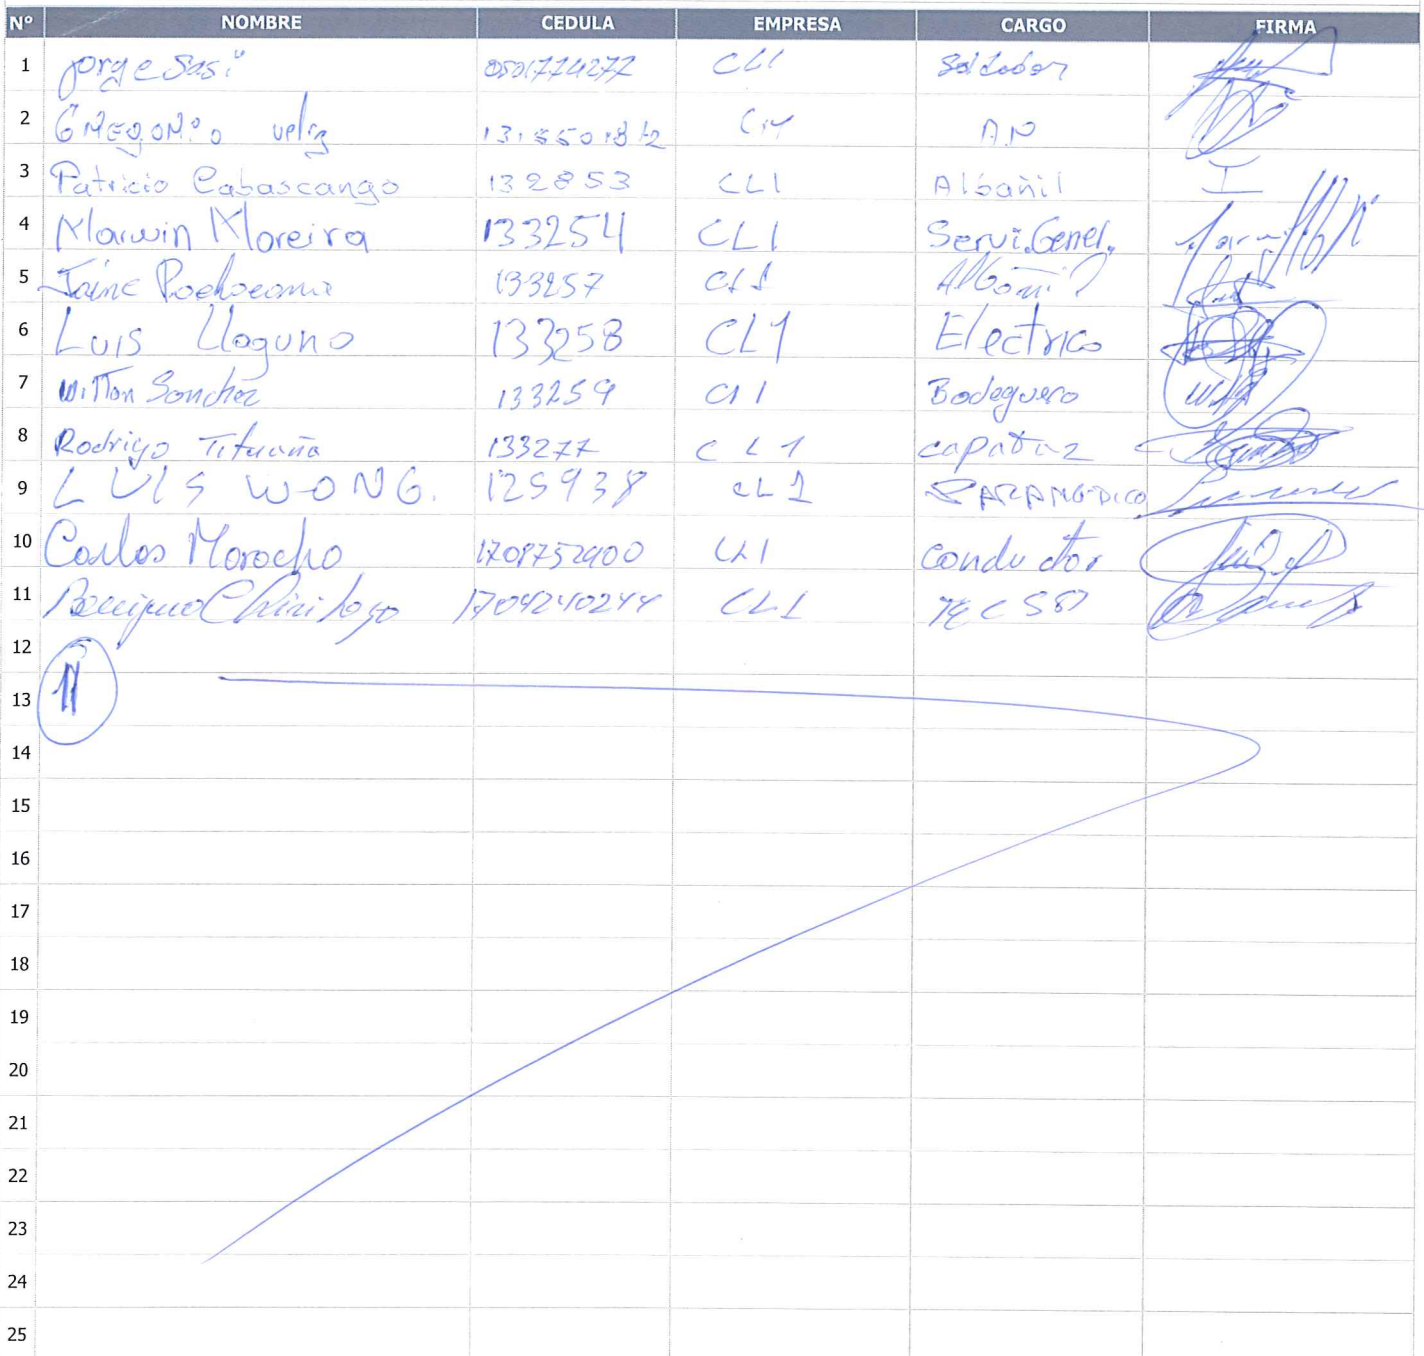 Nº NOMBRE CEDULA EMPRESA CARGO FIRMA
1 jorge Sasi 0501774277 CLI Soldador
2 GREGORIO veliz CLI A.P
3 Patricio Cabascango 132853 CLI Albañil I
4 Marwin Moreira 133254 CLI Servi.Genel.
5 Jaime 133257 CLI Albañil
6 Luis Llaguno 133258 CL1 Electrico
7 Wilton Sanchez 133259 CLI Bodeguero
8 Rodrigo Tituaña 133277 CL1 capataz
9 LUIS WONG. 125938 CL1 PARAMEDICO
10 Carlos Morocho 1708752400 CLI conductor
11 1704240244 CLI
12
13 11
14
15
16
17
18
19
20
21
22
23
24
25